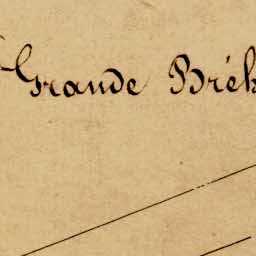 Grande Bréh